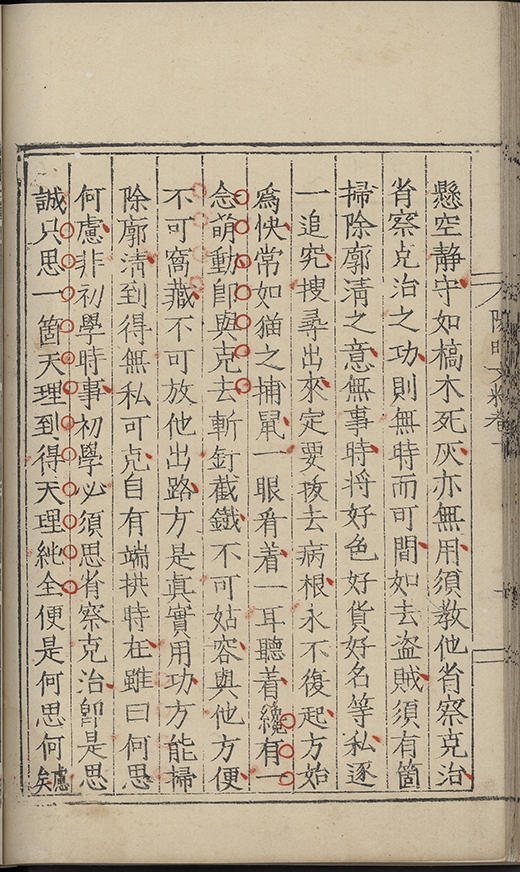 懸空静守如槁木死灰亦無用須教他省察克治
省察克治之功則無時而可間如去盗賊須有箇
掃除廓清之意無事時将好色好貨好名等私逐
一追究搜尋出來定要拔去病根永不復起方始
爲快常如猫之捕鼠一眼看着一耳聽着纔有一
念萌動即與克去斬釘截鐵不可姑容與他方便
不可窩藏不可放他出路方是眞實用功方能掃
除廓清到得無私可克自有端拱時在雖曰何思
何慮非初學時事初學必須思省察克治卽是思
誠只思一箇天理到得天理純全便是何思何慮矣
陽明文粹卷